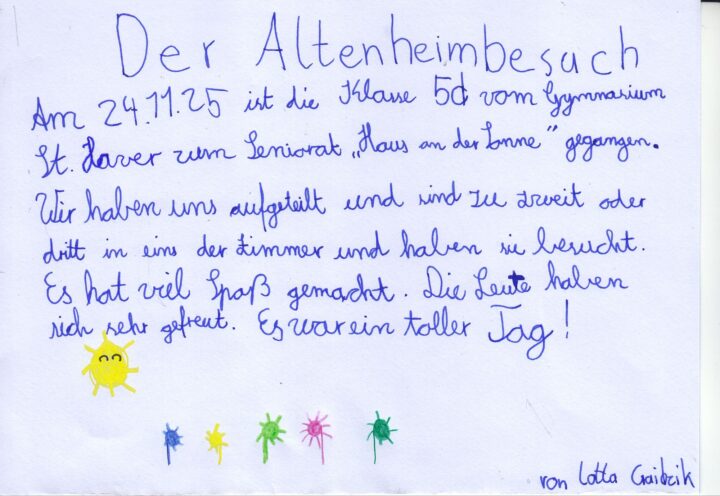 Der Altenheimbesuch
Am 24.11.25 ist die Klasse 5d vom Gymnasium
St. Xaver zum Seniorat „Haus an der Sonne" gegangen.
Wir haben uns aufgeteilt und sind zu zweit oder
dritt in eins der Zimmer und haben sie besucht.
Es hat viel Spaß gemacht. Die Leute haben
sich sehr gefreut. Es war ein toller Tag!
von Lotta